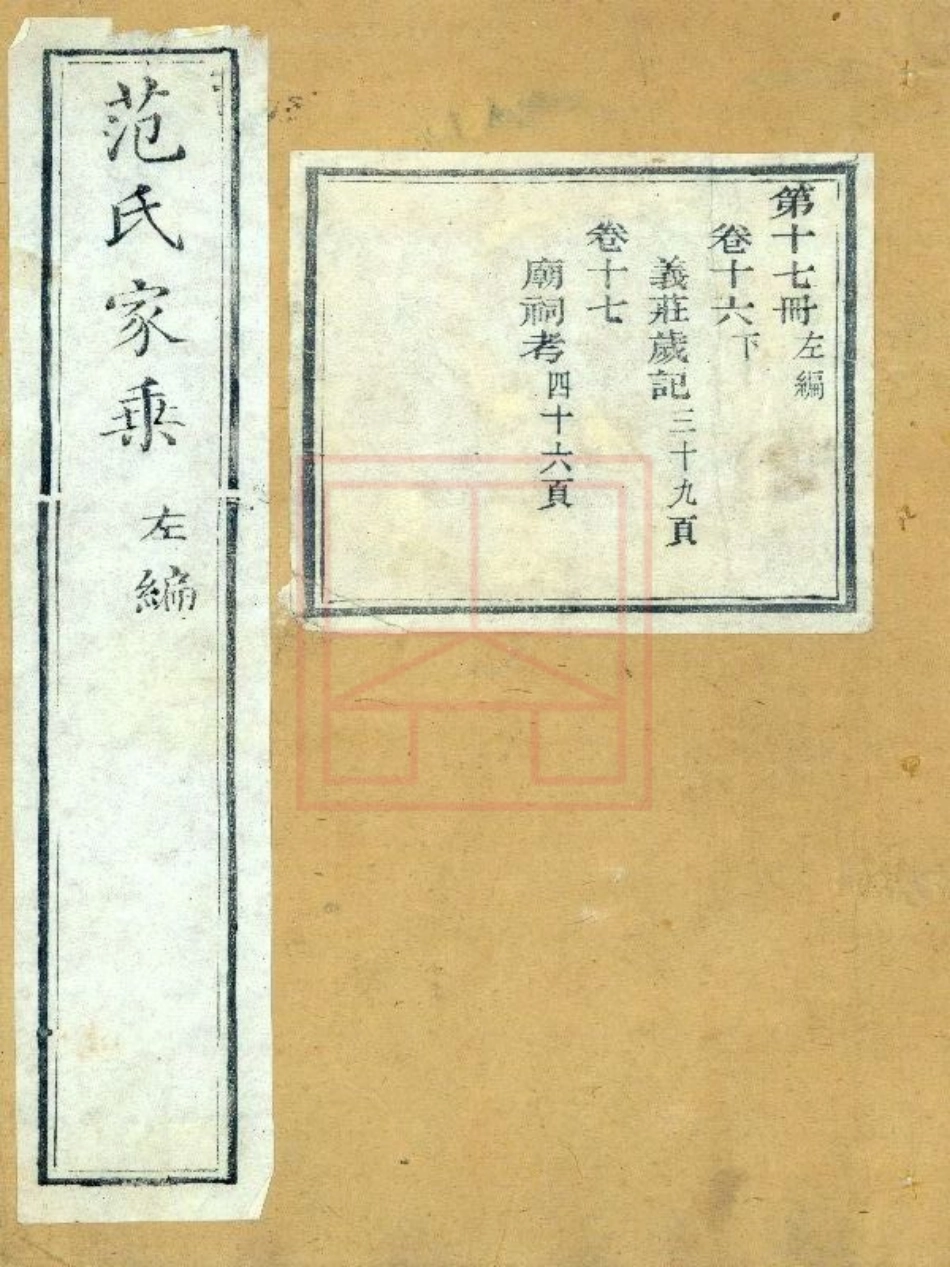 第十七冊左編
卷十六下
義莊歲記三十九頁
卷十七
廟祠考四十六頁
范氏家乘
左編